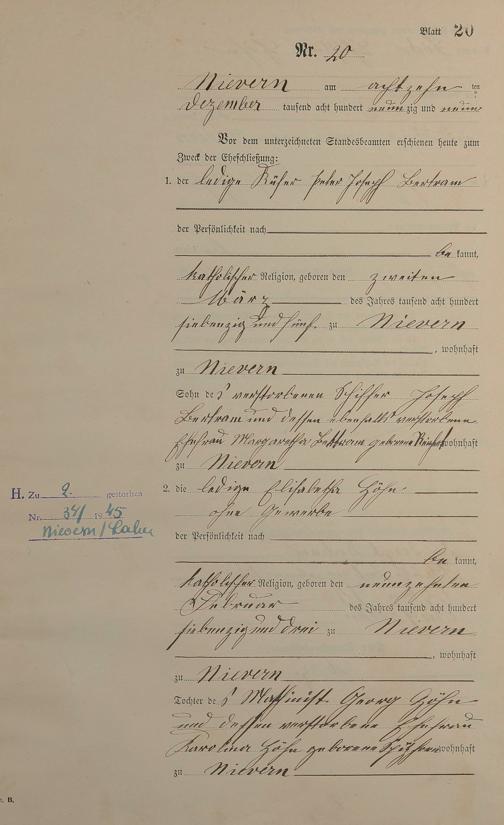 Blatt 20
Nr. 20
Nievern am achtzehn ten
Dezember tausend acht hundert neunzig und neun
Vor dem unterzeichneten Standesbeamten erschienen heute zum
Zweck der Eheschließung:
1. der ledige Küfer Peter Joseph Bertram
der Persönlichkeit nach
be kannt,
katholischer Religion, geboren den zweiten
März des Jahres tausend acht hundert
siebenzig und fünf zu Nievern
, wohnhaft
zu Nievern
Sohn des verstorbenen Schiffer Joseph
Bertram und dessen ebenfalls verstorbenen
Ehefrau Margaretha Bertram geborene wohnhaft
zu Nievern
2. die ledige Elisabetha Höhn
ohne Gewerbe
der Persönlichkeit nach
be kannt,
katholischer Religion, geboren den neunzehnten
Februar des Jahres tausend acht hundert
siebenzig und drei zu Nievern
, wohnhaft
zu Nievern
Tochter des Maschinist Georg Höhn
und dessen verstorbene Ehefrau
Karolina Höhn geborene wohnhaft
zu Nievern
H. Zu 2. gestorben
Nr. 34/1945
Nievern/Lahn
B.